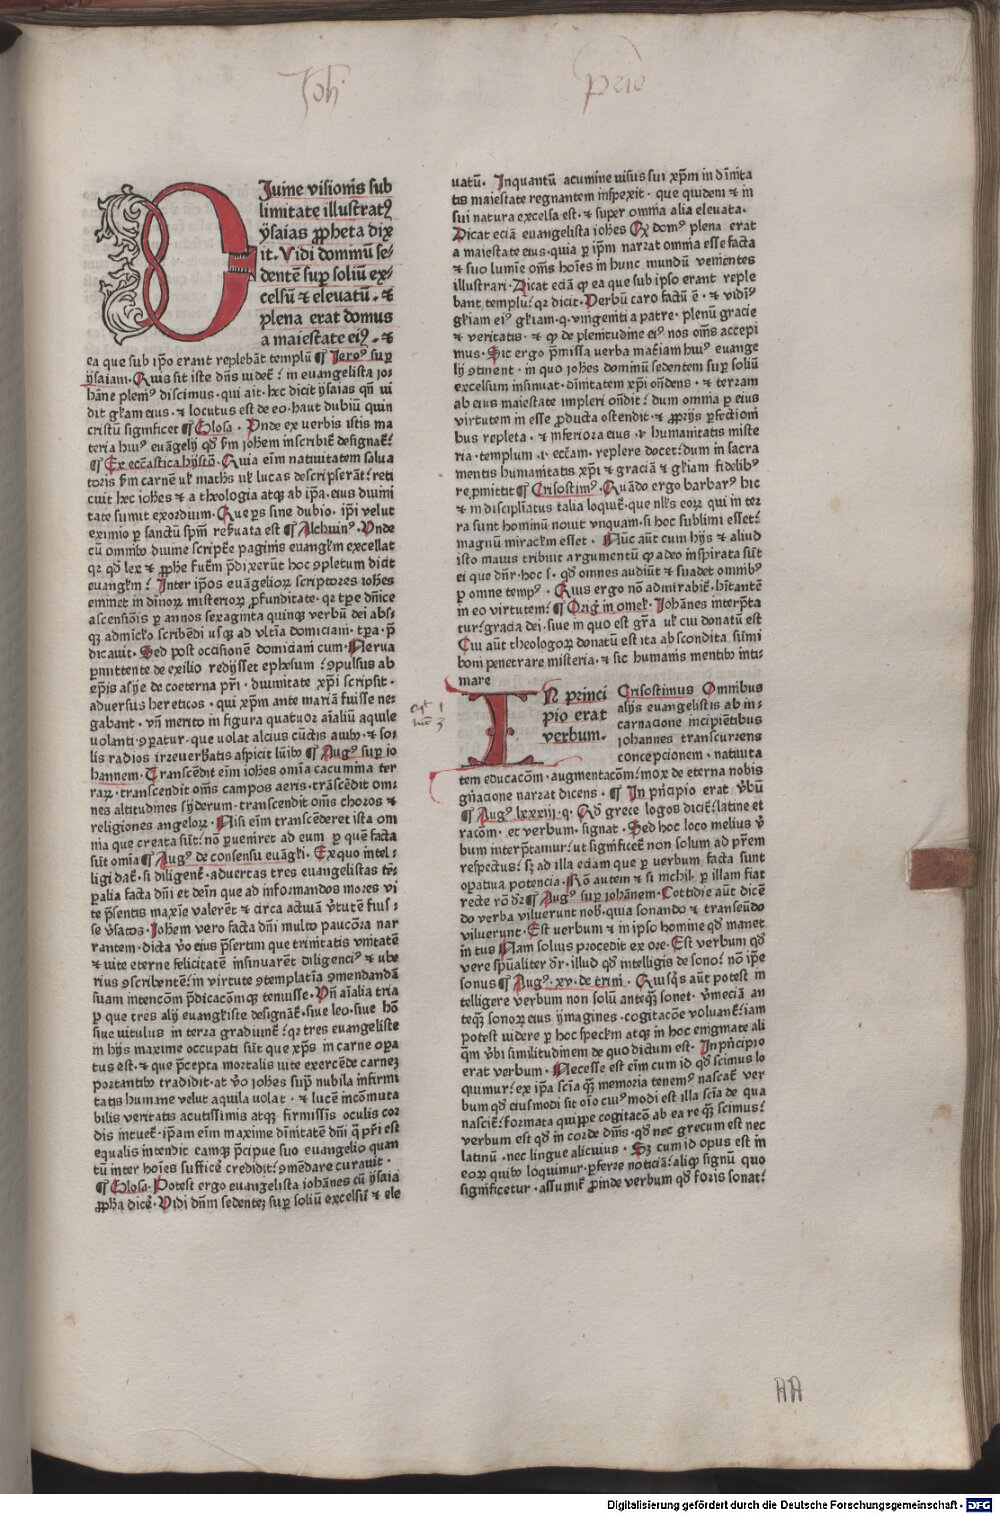 Joh
prio
Diuine visionis sub
limitate illustratꝰ
ysaias ꝓpheta dix
it. Vidi dominū se⸗
dentē suꝑ soliū ex⸗
celsū ⁊ eleuatū. ⁊
plena erat domus
a maiestate eiꝰ. ⁊
ea que sub ip̄o erant replebāt templū ¶ Jeroꝰ suꝑ
ysaiam. Quis sit iste dn̄s videt᷑: in euangelista io⸗
hāne pleniꝰ discimus. qui ait. hec dicit ysaias qn̄ vi
dit gl̄iam eius. ⁊ locutus est de eo. haut dubiū quin
cristū significet ¶ Glosa. Vnde ex verbis istis ma
teria huiꝰ euāgelij qd̓ ẜm ioh̓em inscribit᷑ designat᷑:
¶ Ex ecc̄astica hystō. Quia eīm natiuitatem salua
toris ẜm carnē ul̓ mathꝰ ul̓ lucas descripserāt: reti
cuit hec ioh̓es ⁊ a theologia atqꝫ ab ip̄a eius diuini
tate sumit exordium. Que ꝑs sine dubio. ip̄i velut
eximio ꝑ sanctū sp̄m reẜuata est ¶ Alchuinꝰ. Vnde
cū omnibꝰ diuine scripture paginis euangl̓m excellat
qꝛ qd̓ lex ⁊ ꝓph̓e futur̄ p̄dixerūt hoc ꝯpletum dicit
euangl̓m: Inter ip̄os euāgelioꝝ scriptores ioh̓es
eminet in diuīoꝝ misterioꝝ ꝓfunditate. qꝛ tꝑe dn̄ice
ascensiōis ꝑ annos sexaginta quinqꝫ verbū dei abs⸗
qꝫ admīcl̓o scribēdi usqꝫ ad vlt̄ia domiciani. tꝑa. p̄
dicauit. Sed post occisionē domiciani cum. Nerua
ꝑmittente de exilio redijsset ephesum: ꝯpulsus ab
ep̄is asye de coeterna pr̄i. diuinitate xp̄i scripsit.
aduersus hereticos. qui xp̄m ante mariā fuisse ne⸗
gabant. vn̄ merito in figura quatuor aīaliū aquile
volanti ꝯꝑatur. que uolat alcius cūctis auibꝰ. ⁊ so⸗
lis radios irreuerẜatis aspicit lūibꝰ ¶ Augꝰ suꝑ io
hannem. Transcēdit eīm ioh̓es om̄ia cacumina ter
raꝝ. transcendit om̄s campos aeris. trāscēdit om⸗
nes altitudines syderum. transcendit om̄s choros ⁊
religiones angeloꝝ. Nisi eīm transcēderet ista om
nia que creata sūt: nō ꝑueniret ad eum ꝑ quē facta
sūt om̄ia ¶ Augꝰ de consensu euāgl̓i. Ex quo intel⸗
ligi dat᷑. si diligent᷑. aduertas tres euangelistas tē⸗
ꝑalia facta dn̄i et dc̄a que ad informandos mores vi
te p̄sentis maxīe valerēt ⁊ circa actiuā v̓tutē fuis⸗
se v̓satos. Joh̓em vero facta dn̄i multo paucōra nar
rantem. dicta v̓o eius p̄sertim que trinitatis vnitatē
⁊ uite eterne felicitatē insinuarēt diligenciꝰ ⁊ ube
rius ꝯscribentē: in virtute ꝯtemplatīa ꝯmendandā
suam intencōem p̄dicacōmqꝫ tenuisse. Vn̄ aīalia tria
ꝑ que tres alij euangl̓iste designāt᷑. siue leo. siue hō
siue vitulus in terra gradiunt᷑: qꝛ tres euangeliste
in hijs maxime occupati sūt que xp̄s in carne oꝑa
tus est. ⁊ que p̄cepta mortalis uite exercēde carnēꝫ
portantibꝰ tradidit. at v̓o ioh̓es supra nubila infirmi
tatis humane velut aquila uolat. ⁊ lucē incōmuta
bilis veritatis acutissimis atqꝫ firmissīs oculis cor
dis intuet᷑. ip̄am eīm maxime diuītatē dn̄i q̄ pr̄i est
equalis intendit eamqꝫ p̄cipue suo euangelio quan
tū inter hoīes sufficē credidit: ꝯmēdare curauit.
¶ Glosa. Potest ergo euangelista iohānes cū ysaia
ꝓph̓a dicē. Vidi dn̄m sedenteꝫ suꝑ soliū excelsū ⁊ ele
uatū. Inquantū acumine uisus sui xp̄m in diuīta
tis maiestate regnantem inspexit. que quidem ⁊ in
sui natura excelsa est. ⁊ super omnia alia eleuata.
Dicat eciā euangelista ioh̓es Qꝛ domꝰ plena erat
a maiestate eius. quia ꝑ ip̄m narrat omnia esse facta
⁊ suo lumīe om̄s hoīes in hunc mundū venientes
illustrari. Dicat eciā ꝙ ea que sub ipso erant reple
bant templū: qꝛ dicit. Verbū caro factū ē. ⁊ vidiꝰ
gl̄iam eiꝰ gl̄iam. q. vnigeniti a patre. plenū gracie
⁊ veritatis. ⁊ ꝙ de plenitudine eiꝰ nos om̄s accepi
mus. Sic ergo p̄missa uerba materiam huiꝰ euange
lij ꝯtinent. in quo ioh̓es dominū sedentem suꝑ soliū
excelsum insinuat. diuītatem xp̄i on̄dens. ⁊ terram
ab eius maiestate impleri on̄dit: dum omnia ꝑ eius
virtutem in esse ꝓducta ostendit. ⁊ ꝓprijs ꝑfectioni
bus repleta. ⁊ inferiora eius .i. humanitatis miste
ria. templum .i. ecc̄am. replere docet: dum in sacra
mentis humanitatis xp̄i ⁊ graciā ⁊ gl̄iam fidelibꝰ
reꝓmittit ¶ Crisostimꝰ. Quādo ergo barbarꝰ hic
⁊ in disciplīatus talia loquit᷑. que nll̓s eoꝝ qui in ter
ra sunt hominū nouit vnquam. si hoc sublimi esset:
magnū miracl̓m esset. Nūc aūt cum hijs ⁊ aliud
isto maius tribuit argumentū ꝙ adeo inspirata sūt
ei que dn̄r. hoc s. qd̓ omnes audiūt ⁊ suadet omnibꝰ
ꝑ omne tempꝰ. Quis ergo nō admirabit᷑. h̓itantē
in eo virtutem: ¶ Orig̓ in omel̓. Johānes interp̄ta
tur: gracia dei. siue in quo est gr̄a ul̓ cui donatū est
Cui aūt theologoꝝ donatū est ita abscondita sūmi
boni penetrare misteria. ⁊ sic humanis mentibꝰ inti⸗
mare
In princi
pio erat
verbum.
Crisostimus Omnibus
alijs euangelistis ab in⸗
carnacione incipiētibus
iohannes transcurrens
concepcionem. natiuita
tem educacōm. augmentacōm: mox de eterna nobis
gn̄acione narrat dicens. ¶ In pn̄cipio erat v̓bū
¶ Augꝰ lxxxiij. q. Qd̓ grece logos dicit᷑: latine et
racōm. et verbum. signat. Sed hoc loco melius v̓
bum interp̄tamur: ut significet᷑ non solum ad pr̄em
respectus: sꝫ ad illa eciam que ꝑ uerbum facta sunt
oꝑatiua potencia. Rō autem ⁊ si nichil ꝑ illam fiat
recte rō dꝛ ¶ Augꝰ suꝑ iohānem. Cottidie aūt dicē
do verba viluerunt nob̓. quia sonando ⁊ transeūdo
viluerunt. Est verbum ⁊ in ipso homine qd̓ manet
in tus Nam solius procedit ex ore. Est verbum qd̓
vere sp̄ualiter dꝛ. illud qd̓ intelligis de sono: nō ip̄e
sonus ¶ Augꝰ. xv. de trini. Quisqꝫ aūt potest in
telligere verbum non solū anteqꝫ sonet. v̓meciā an
teqꝫ sonoꝝ eius ymagines. cogitacōe voluant᷑: iam
potest uidere ꝑ hoc specl̓m atqꝫ in hoc enigmate ali
q̄m v̓bi similitudinem de quo dictum est. In pn̄cipio
erat verbum. Necesse est eīm cum id qd̓ scimus lo
quimur: ex ip̄a sciā qꝫ memoria tenemꝰ nascat᷑ ver
bum qd̓ eiusmodi sit oīo cuiꝰmodi est illa sciā de qua
nascit᷑: formata quippe cogitacō ab ea re qꝫ scimus:
verbum est qd̓ in corde dīmꝰ. qd̓ nec grecum est nec
latinū. nec lingue alicuius. Sꝫ cum id opus est in
eoꝝ quibꝰ loquimur. ꝑferre noticiā: aliqd̓ signū quo
significetur. assumit᷑ ꝓinde verbum qd̓ foris sonat:
AA
Digitalisierung gefördert durch die Deutsche Forschungsgemeinschaft - DFG